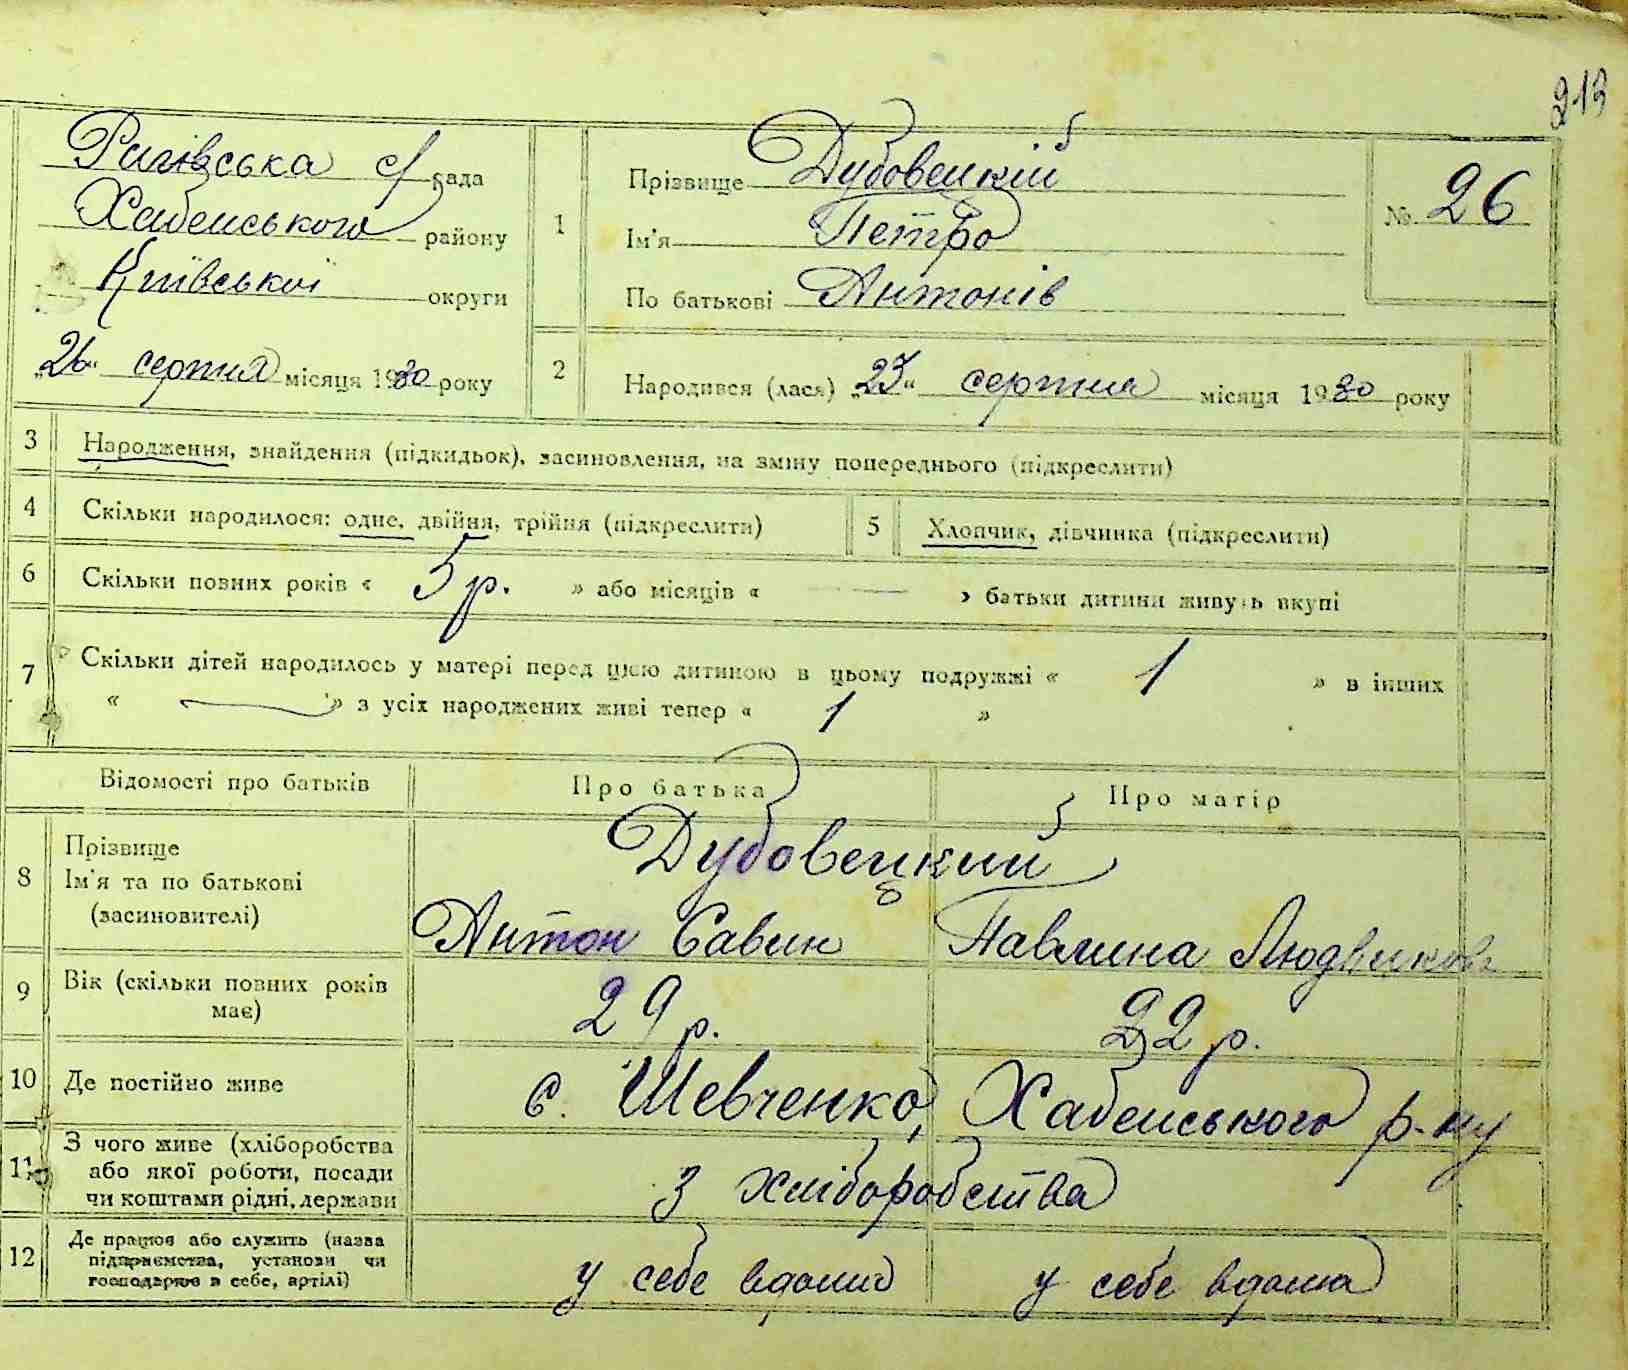 213
Рагівська с/рада
Хабенського району
Київської округи
„26“ серпня місяця 1930 року
1
Прізвище Дубовецкій
Ім'я Петро
По батькові Антонів
№ 26
2
Народився (лася) „23“ серпня місяця 1930 року
3 Народження, знайдення (підкидьок), засиновлення, на зміну попереднього (підкреслити)
4 Скільки народилося: одне, двійня, трійня (підкреслити)
5 Хлопчик, дівчинка (підкреслити)
6 Скільки повних років « 5 р. » або місяців « — » батьки дитини живуть вкупі
7 Скільки дітей народилось у матері перед цією дитиною в цьому подружжі « 1 » в інших
« — » з усіх народжених живі тепер « 1 »
Відомості про батьків
Про батька
Про матір
8 Прізвище
Ім'я та по батькові
(засиновителі)
Дубовецкий
Антон Савин
Павлина Людвиков
9 Вік (скільки повних років
має)
29 р.
22 р.
10 Де постійно живе
с. Шевченко, Хабенського р-ну
11 З чого живе (хліборобства
або якої роботи, посади
чи коштами рідні, держави
З хліборобства
12 Де працює або служить (назва
підприємства, установи чи
господарює в себе, артілі)
у себе вдома
у себе вдома